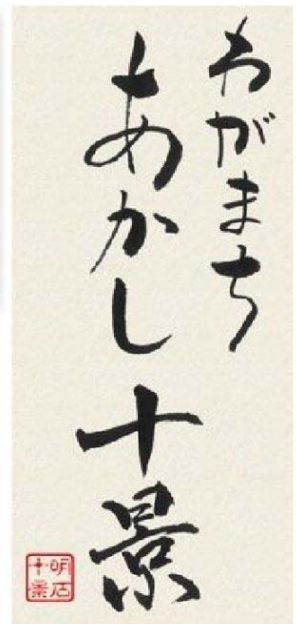 わがまち
あかし十景
明石
十景